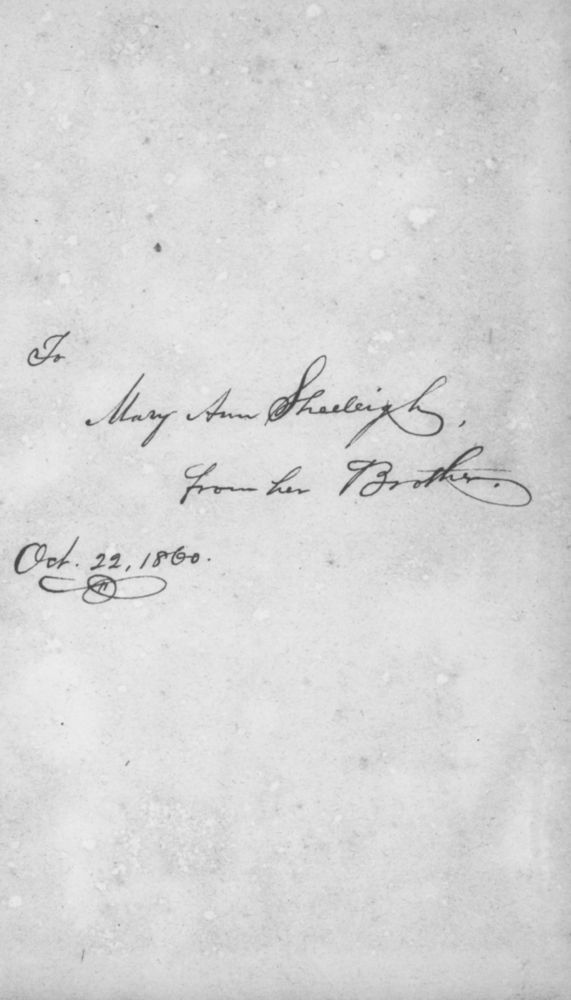 To
Mary Ann Sheeleigh,
from her Brother.
Oct. 22, 1860.